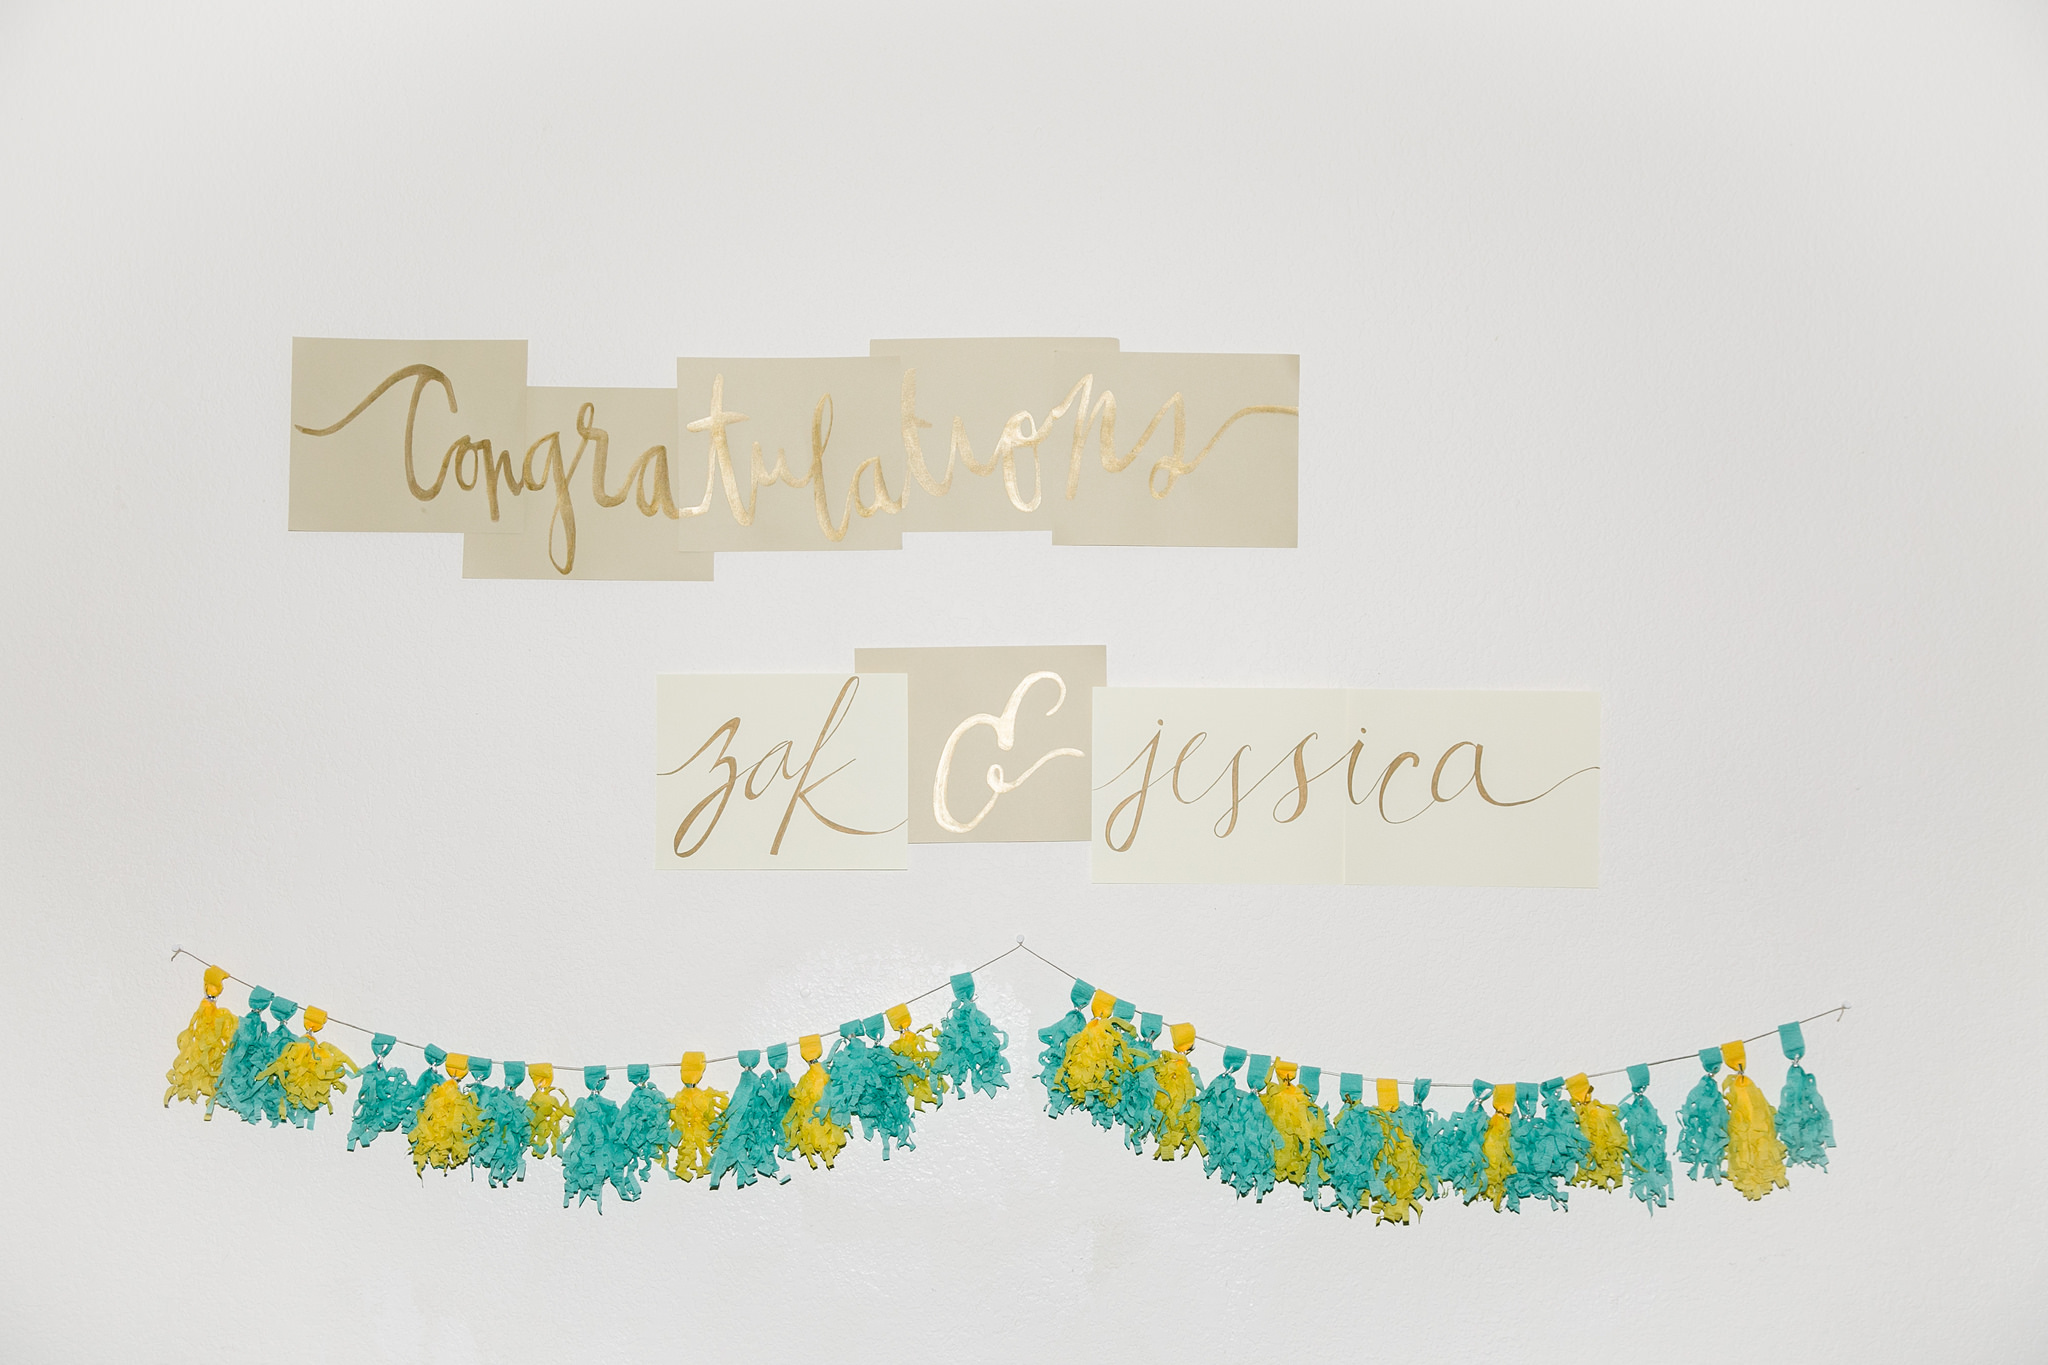 Congratulations
zak & jessica